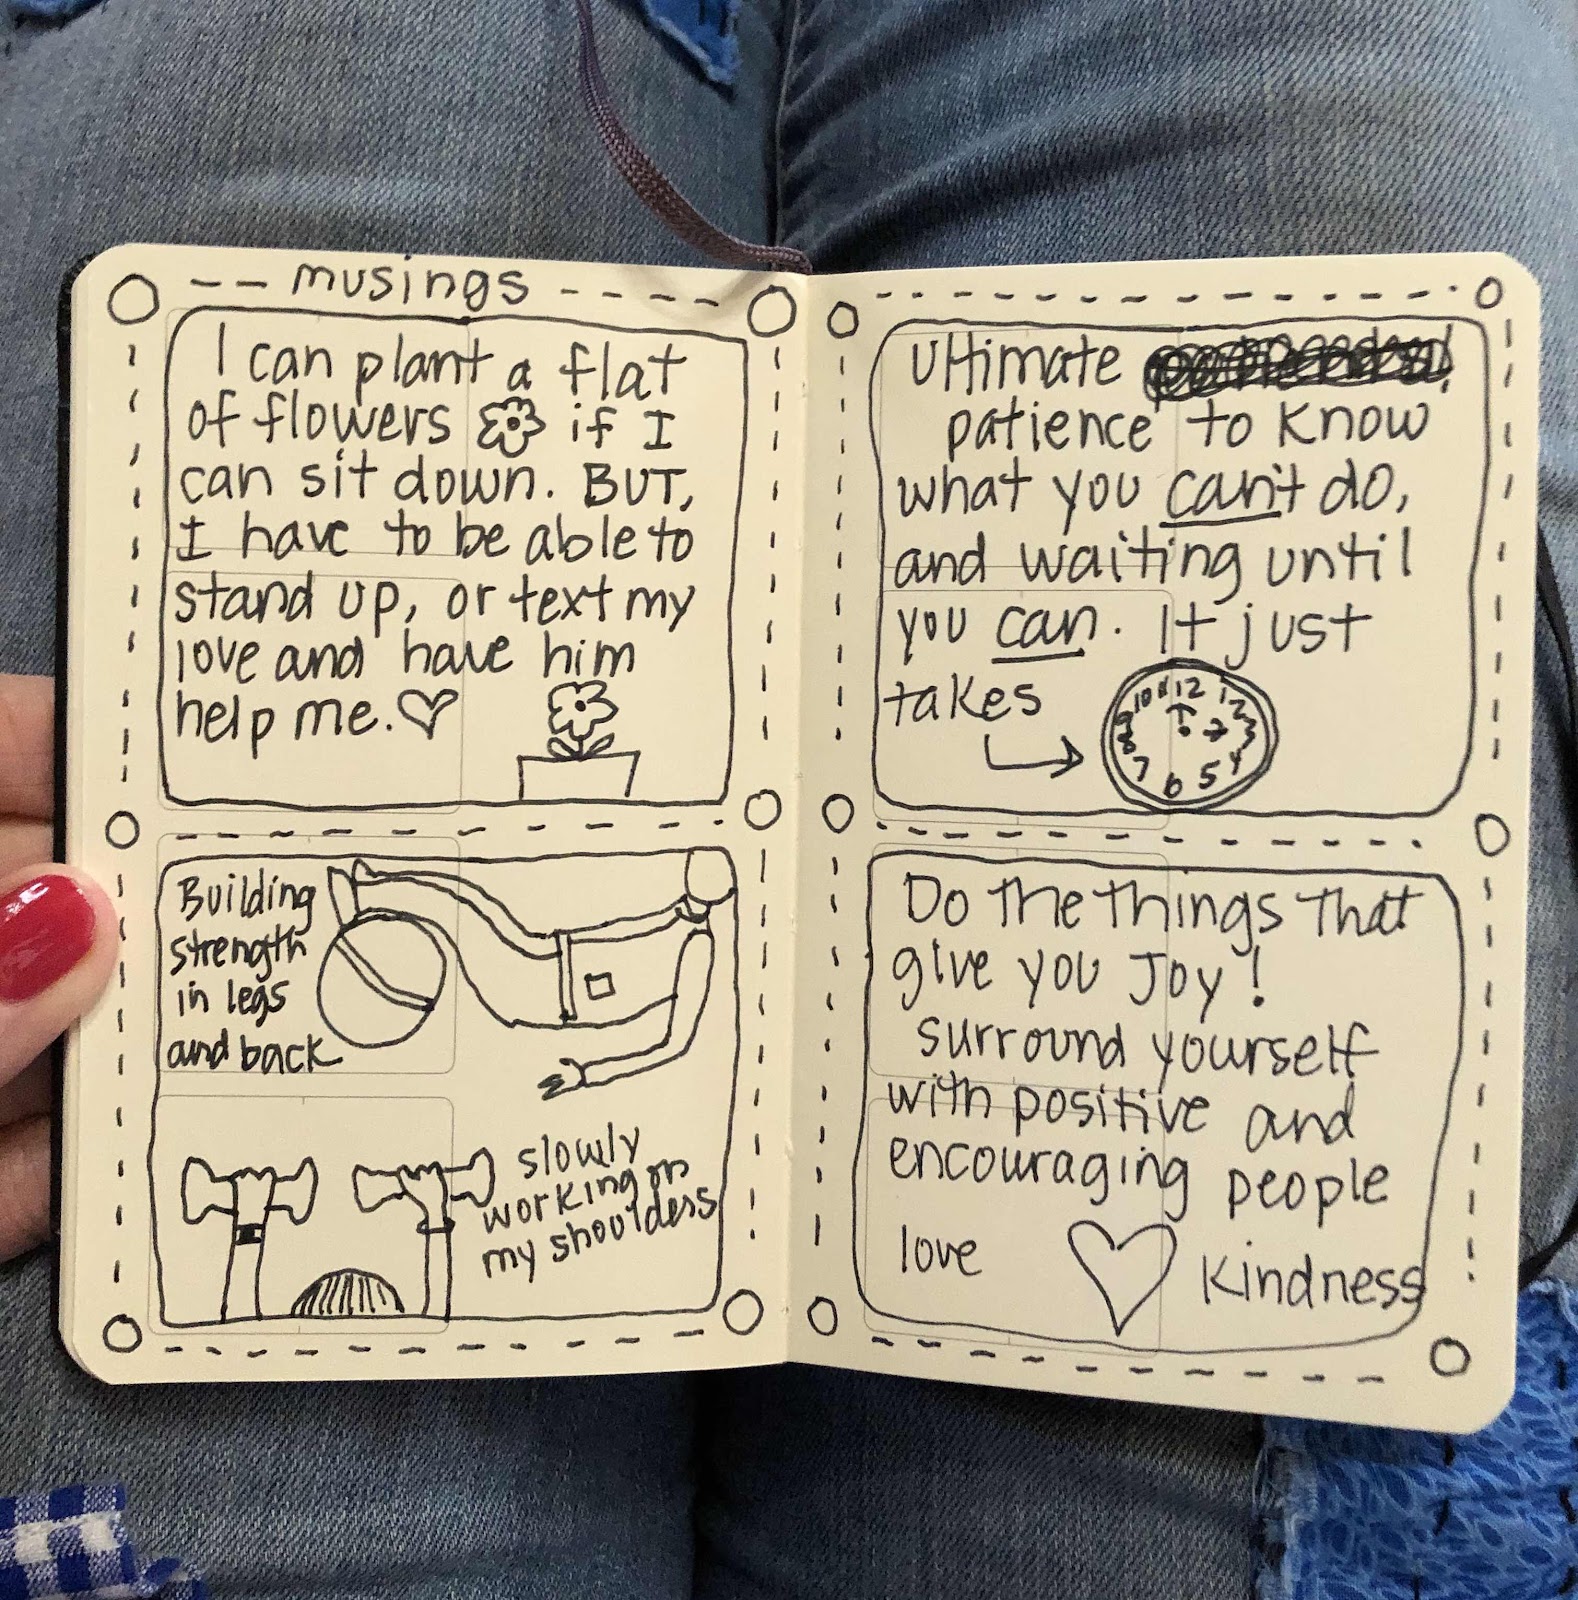 musings
I can plant a flat
of flowers if I
can sit down. BUT,
I have to be able to
stand up, or text my
love and have him
help me.
Building
strength
in legs
and back
slowly
working on
my shoulders
Ultimate
patience to know
what you can't do,
and waiting until
you can. It just
takes
10 11 12 1 2 3 4 5 6 7 8 9
Do the things that
give you Joy!
surround yourself
with positive and
encouraging people
love kindness